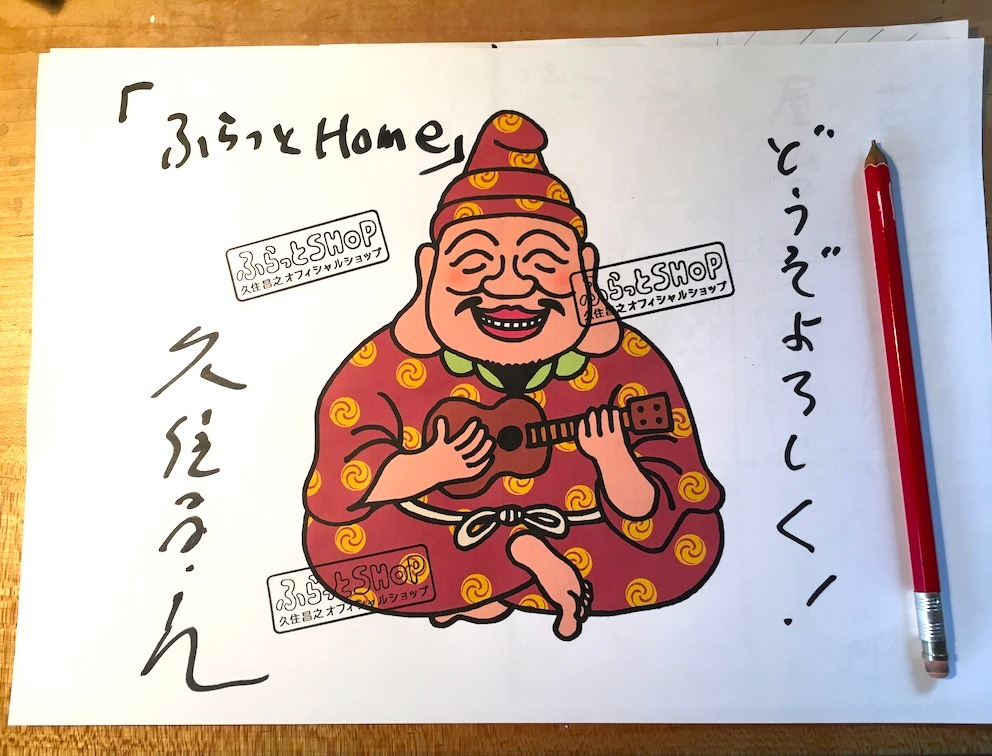 「ふらっとHome」
どうぞよろしく！
ふらっとSHOP
久住昌之オフィシャルショップ
ふらっとSHOP
久住昌之オフィシャルショップ
久住昌之
ふらっとSHOP
久住昌之オフィシャルショップ